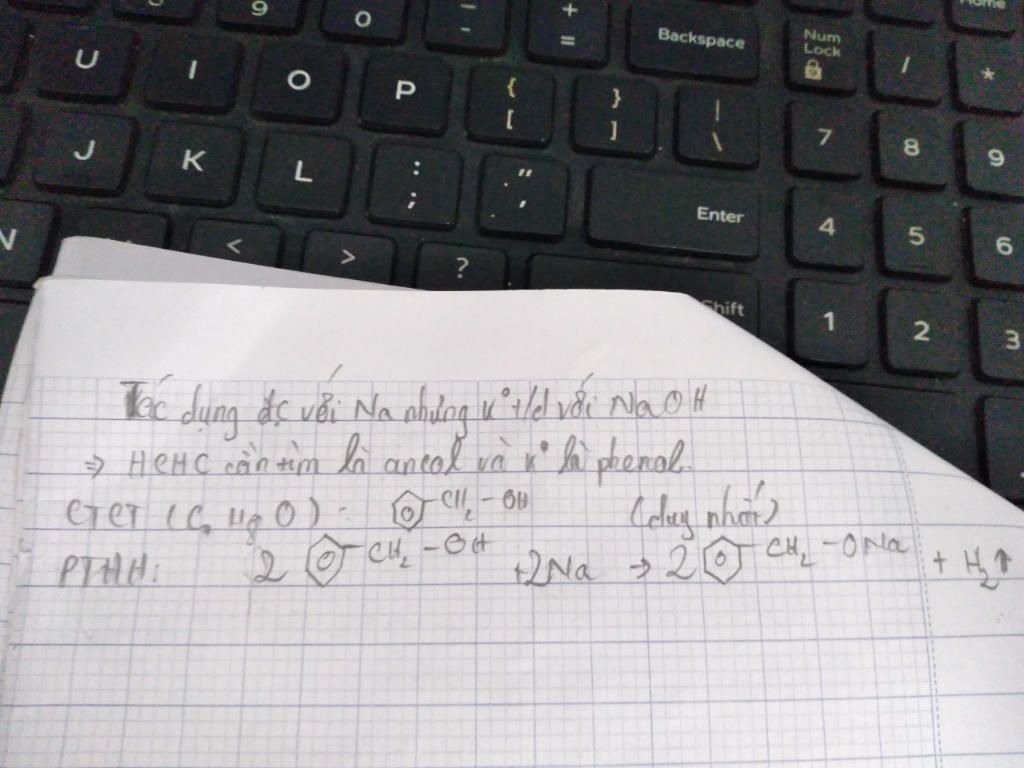 9 0 - - + = Backspace Num Lock / * Home
U I O P { [ } ] | \ 7 8 9
J K L : ; " ' Enter 4 5 6
N < > ? Shift 1 2 3
Tác dụng đc với Na nhưng k° t/d với NaOH
⇒ HCHC cần tìm là ancol và k° là phenol.
CTCT (C₇H₈O): CH₂-OH (duy nhất)
PTHH: 2 CH₂-OH + 2Na → 2 CH₂-ONa + H₂↑